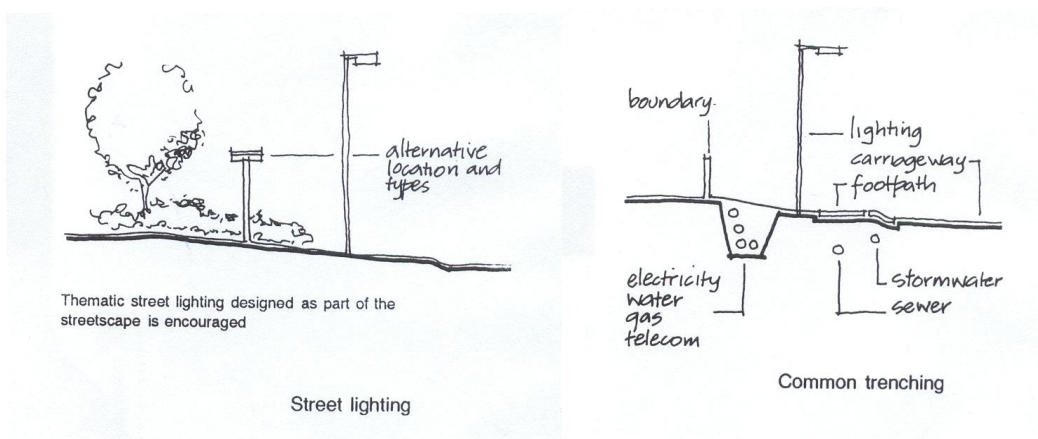 alternative
location and
types
Thematic street lighting designed as part of the
streetscape is encouraged
Street lighting
boundary
lighting
carriageway
footpath
electricity
water
gas
telecom
stormwater
sewer
Common trenching